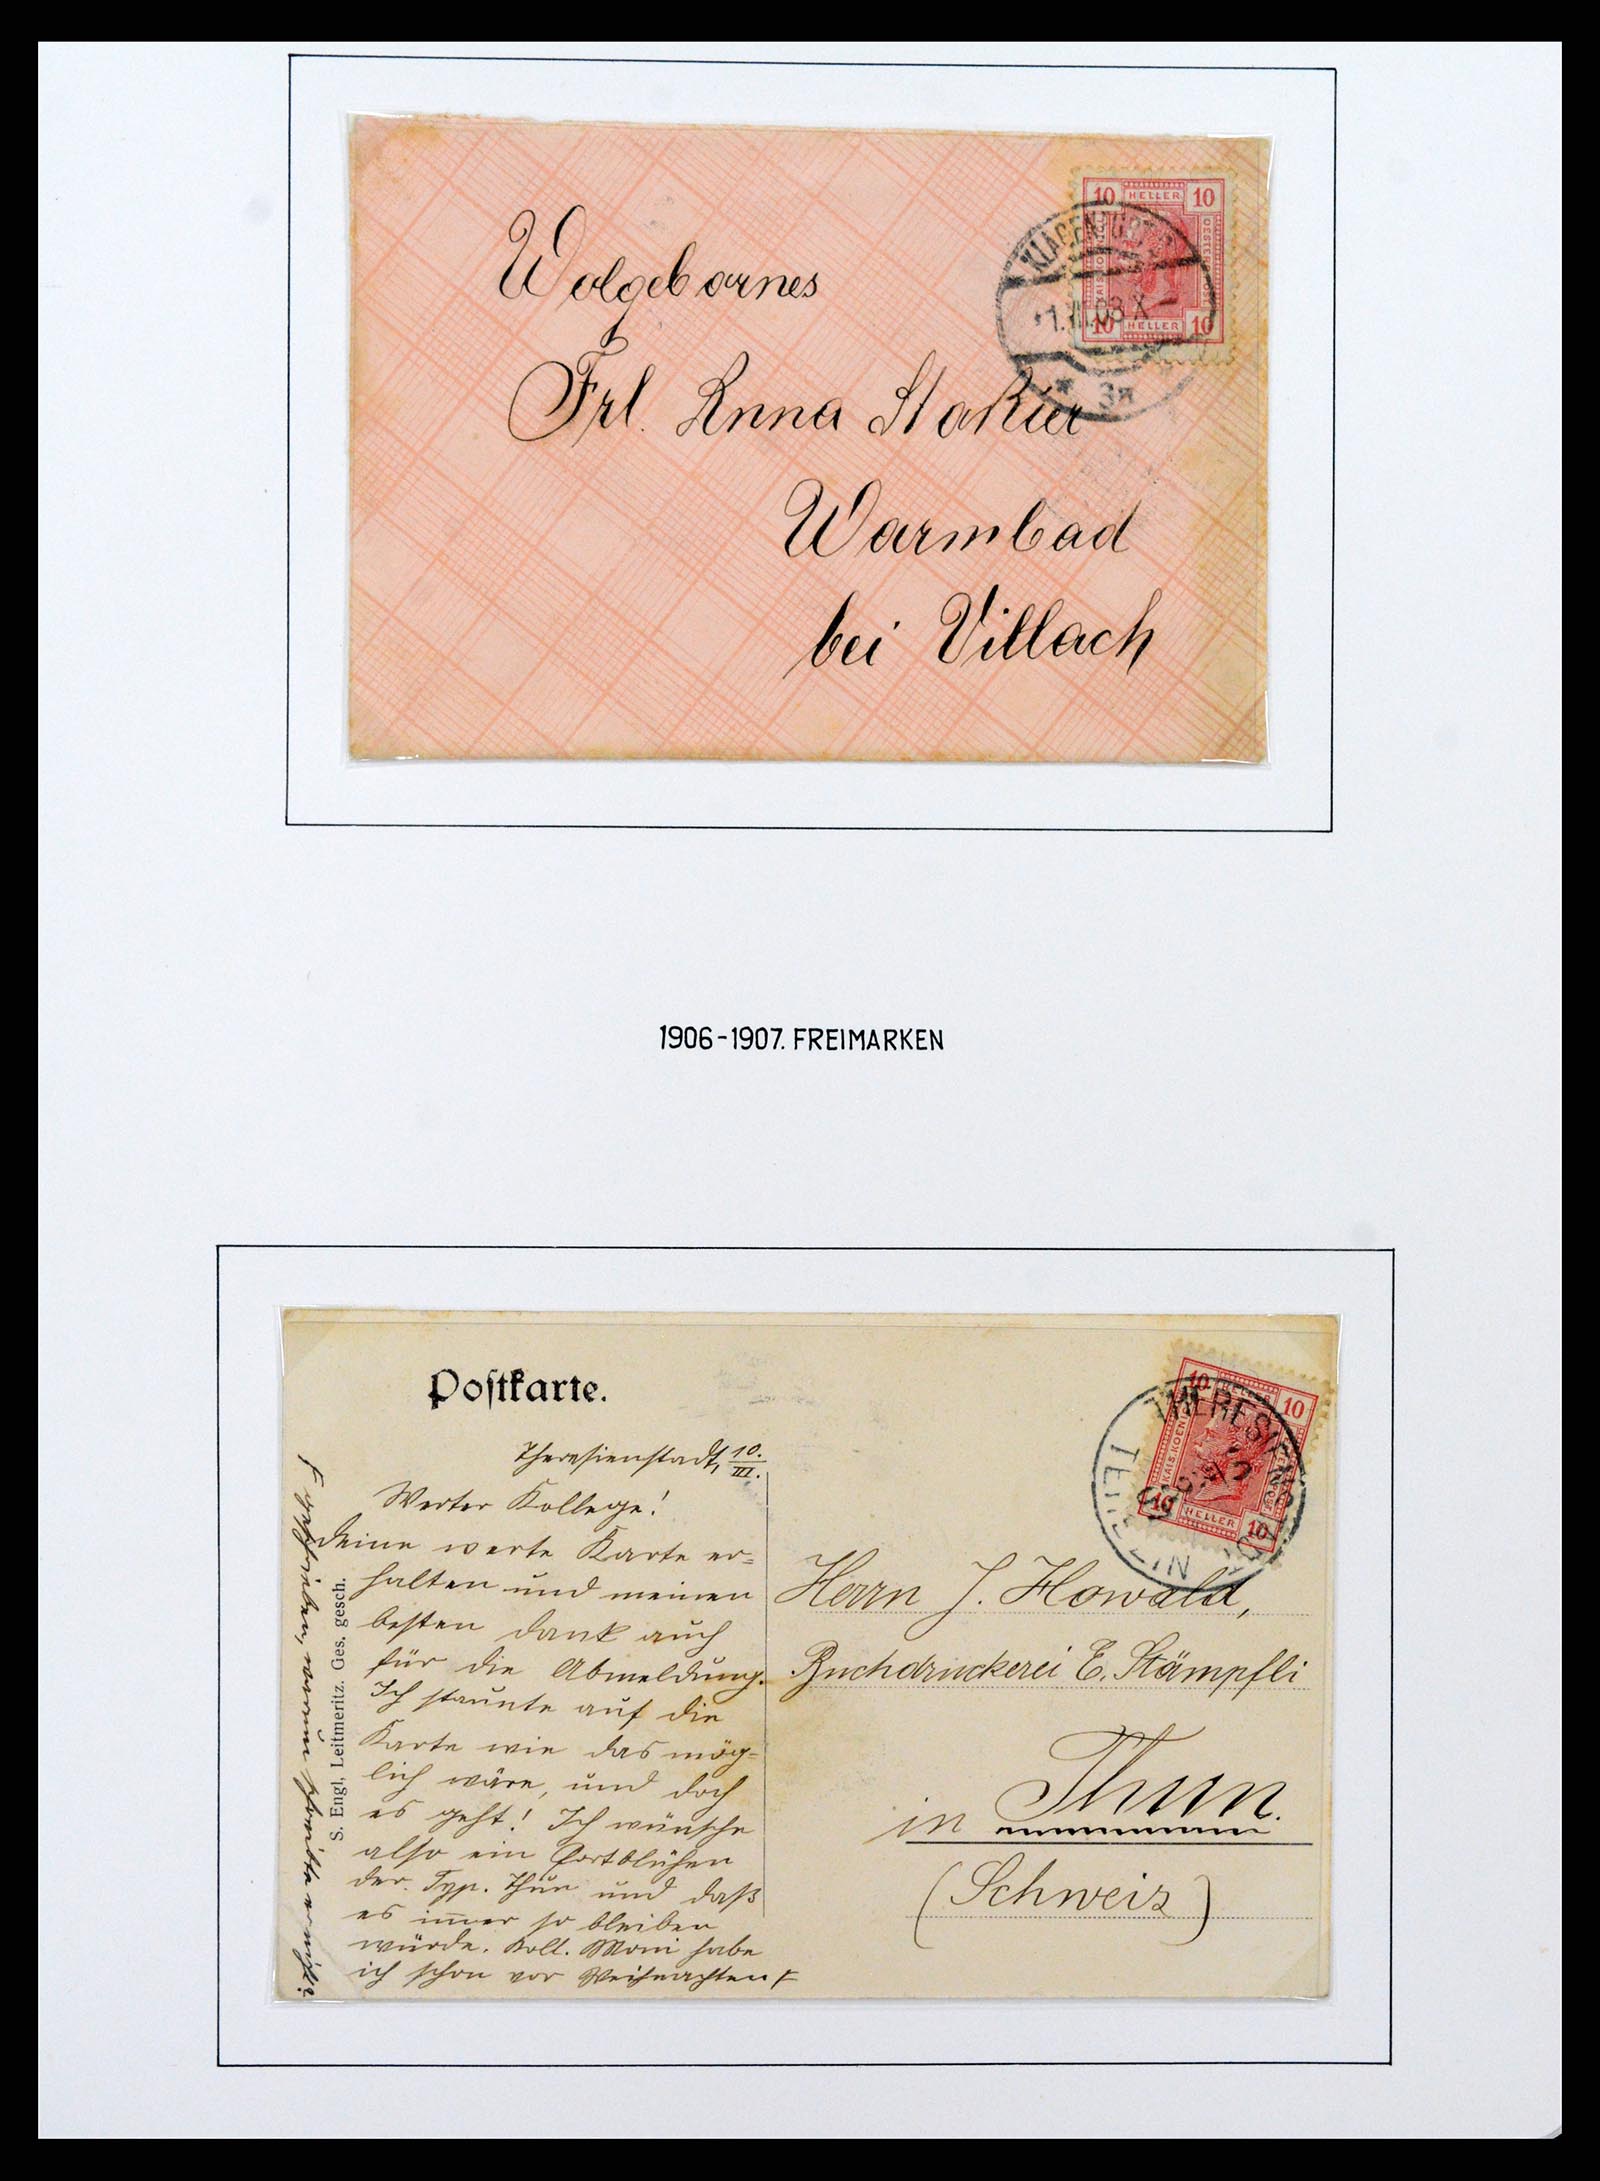 10 HELLER 10
KLAGENFURT
1.III.08.X
10 HELLER 10
* 3a
Wolgebornes
Frl. Anna Stakur
Warmbad
bei Villach
1906-1907. FREIMARKEN
Postkarte.
10 HELLER 10
THERESIENSTADT
TEREZIN
10 HELLER 10
Theresienstadt, 10./III.
Werter Kollege!
Deine werte Karte er=
halten und meinen
besten Dank auch
für die Abmeldung.
Ich staunte auf die
Karte wie das mög=
lich wäre, und doch
es geht! Ich wünsche
also ein Fortblühen
der Typ. Thun und daß
es immer so bleiben
würde. Koll. Moni habe
ich schon vor Weihnachten
geschrieben, warum schreibt er nicht?
S. Engl, Leitmeritz. Ges. gesch.
Herrn J. Howald,
Buchdruckerei E. Stämpfli
in Thun.
(Schweiz)